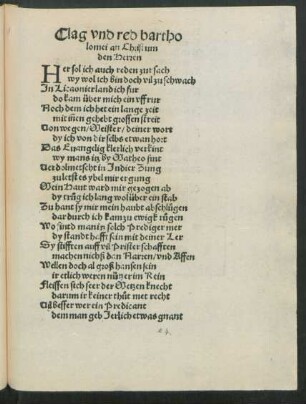 Clag vnd red bartho
lomei an Christum
den Herren
Her sol ich auch reden zur sach
wy wol ich bin doch vil zu schwach
In Licaonier land ich fur
do kam über mich ein vffrur
Noch dem ich het ein lange zeit
mit im̄en gehebt grossen streit
Von wegen / Meister / deiner wort
dy ich von dir selbs etwan hort
Das Euangelig klerlich verkint
wy mans in by Matheo fint
Verdolmetscht in Indier zung
zu letst es ybel mir ergung
Mein Haut ward mir gezogen ab
dy trüg ich lang wol über ein stab
Zu hant sy mir mein haubt abschlügen
dar durch ich kam zu ewigk rügen
Wo sind man in solch Prediger mer
dy standthafft sein mit deiner Ler
Sy steffren auff vil Prister schaffren
machen nichß dan Narren / vnd Affen
Wellen doch al groß hansen sein
ir etlich weren nützer im Rein
Fleissen sich seer der Metzen knecht
darum ir keiner thüt mer recht
Vil besser wer ein Predicant
dem man geb Jerlich etwas gnant